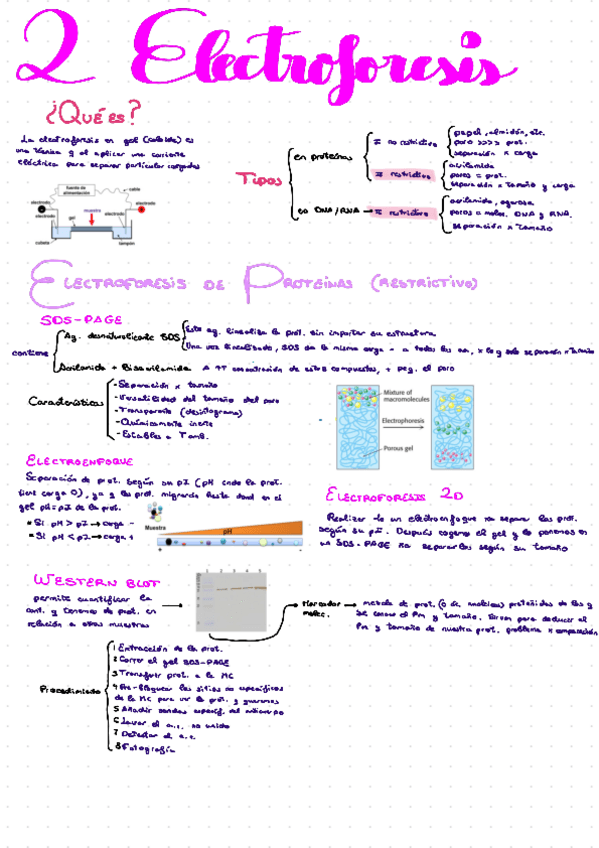 2 Electroforesis
¿Qué es?
La electroforesis en gel (coloide) es
una técnica q al aplicar una corriente
eléctrica para separar particular cargadas
fuente de
alimentación
cable
electrodo
electrodo
muestra
electrodo
gel
electrodo
cubeta
tampón
Tipos
en proteínas
no restrictivo
papel, almidón, etc.
poro >>>> prot.
separación x carga
restrictivo
acrilamida
poros = prot.
separación x tamaño y carga
en DNA/RNA → restrictivo
acrilamida, agarosa
poros a molec. DNA y RNA.
separación x tamaño
Electroforesis de Proteínas (restrictivo)
SDS-PAGE
contiene
Ag. desnaturalizante SDS
Este ag. linealiza la prot. sin importar su estructura
Una vez linealizado, SDS da la misma carga - a todos los aa, x lo q solo separación x tamaño
Acrilamida + Bisacrilamida A ↑↑ concentración de estos compuestos, + peq. el poro
Características
-Separación x tamaño
-Versatilidad del tamaño del poro
-Transparente
-Químicamente inerte
-Estables a Tamb.
Mixture of
macromolecules
Electrophoresis
Porous gel
Electroenfoque
Separación de prot. según su pI (pH cndo la prot.
tiene carga 0), ya q las prot. migrarán hasta donde en el
gel pH=pI de la prot.
Si pH > pI → carga -
Si pH < pI → carga +
Muestra
pH
Electroforesis 2D
Realizar 1o un electroenfoque xa separar las prot.
según su pI. Después cogemos el gel y lo ponemos en
un SDS-PAGE xa separarlas según su tamaño
Western blot
permite cuantificar la
cant. q tenemos de prot. en
relación a otras muestras
1 2 3 4 5
Marcador
molec.
mezcla de prot. (o ác. nucleicos) preteñidas de las q
se conoce el Pm y tamaño. Sirven para deducir el
Pm y tamaño de nuestra prot. problema x comparación
Procedimiento
1 Extracción de la prot.
2 Correr el gel SDS-PAGE
3 Transferir prot. a la MC
4 Pre-bloquear los sitios no específicos
de la MC para ver la prot. q queremos
5 Añadir sondas específ. del anticuerpo
6 Lavar el a.c. no unido
7 Detectar el a.c.
8 Fotografía